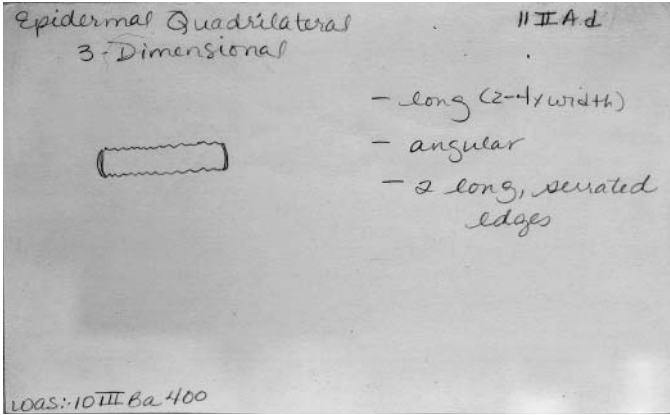 Epidermal Quadrilateral
3-Dimensional
11 II A.d
- long (2-4x width)
- angular
- 2 long, serrated
edges
WAS:-10 III Ba 400